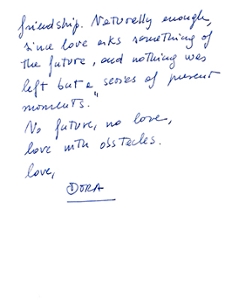 friendship. Naturally enough,
since love asks something of
the future, and nothing was
left but a series of present
moments."
No future, no love,
love with obstacles.
love,
DORA